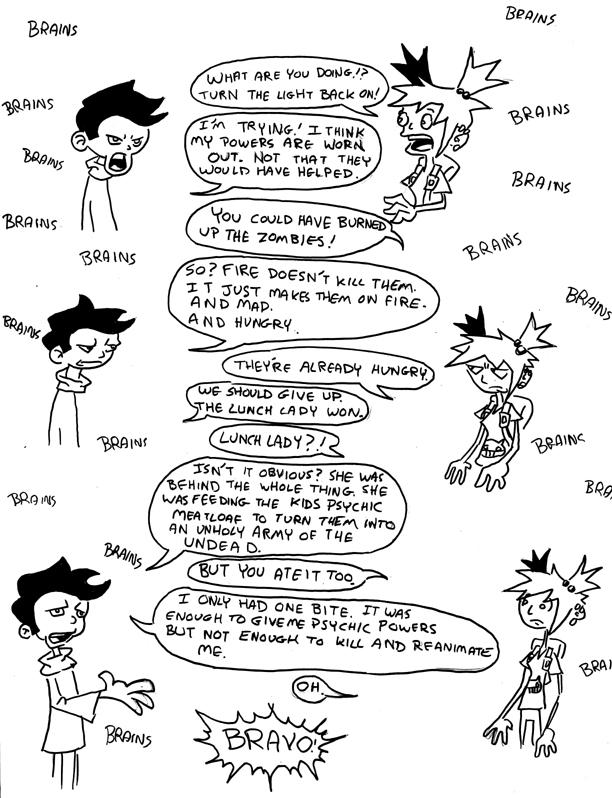 BRAINS
BRAINS
WHAT ARE YOU DOING!?
TURN THE LIGHT BACK ON!
BRAINS
BRAINS
I'M TRYING! I THINK
MY POWERS ARE WORN
OUT. NOT THAT THEY
WOULD HAVE HELPED.
BRAINS
BRAINS
BRAINS
YOU COULD HAVE BURNED
UP THE ZOMBIES!
BRAINS
BRAINS
SO? FIRE DOESN'T KILL THEM.
IT JUST MAKES THEM ON FIRE.
AND MAD.
AND HUNGRY.
BRAINS
BRAINS
THEY'RE ALREADY HUNGRY.
WE SHOULD GIVE UP.
THE LUNCH LADY WON.
LUNCH LADY?!
BRAINS
BRAINS
ISN'T IT OBVIOUS? SHE WAS
BEHIND THE WHOLE THING. SHE
WAS FEEDING THE KIDS PSYCHIC
MEATLOAF TO TURN THEM INTO
AN UNHOLY ARMY OF THE
UNDEAD.
BRAINS
BRA
BRAINS
BUT YOU ATE IT TOO.
I ONLY HAD ONE BITE. IT WAS
ENOUGH TO GIVE ME PSYCHIC POWERS
BUT NOT ENOUGH TO KILL AND REANIMATE
ME.
BRAI
OH.
BRAINS
BRAVO!